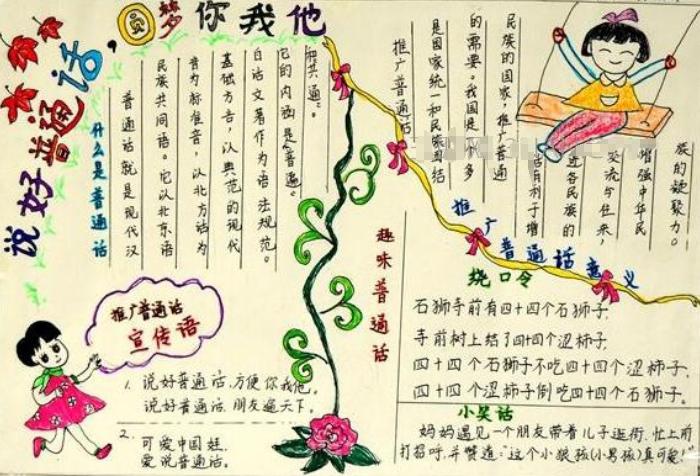 说好普通话,圆梦你我他
什么是普通话
普通话就是现代汉
民族共同语。它以北京语
音为标准音，以北方话为
基础方言，以典范的现代
白话文著作为语法规范。
它的内涵是“普遍”
和共通”。
推广普通话
是国家统一和民族团结
的需要。我国是 多
民族的国家，推广普通
有利于增
进各民族的
交流与往来，
增强中华民
族的凝聚力。
推广普通话意义
推广普通话
宣传语
1、说好普通话，方便你我他。
说好普通话，朋友遍天下。
2、可爱中国娃，
爱说普通话。
趣味普通话
绕口令
石狮寺前有四十四个石狮子，
寺前树上结了四十四个涩柿子，
四十四个石狮子不吃四十四个涩柿子，
四十四个涩柿子倒吃四十四个石狮子。
小笑话
妈妈遇见一个朋友带着儿子逛街，忙上前
打招呼，并赞道：“这个小狼孩(小男孩)真可爱！”